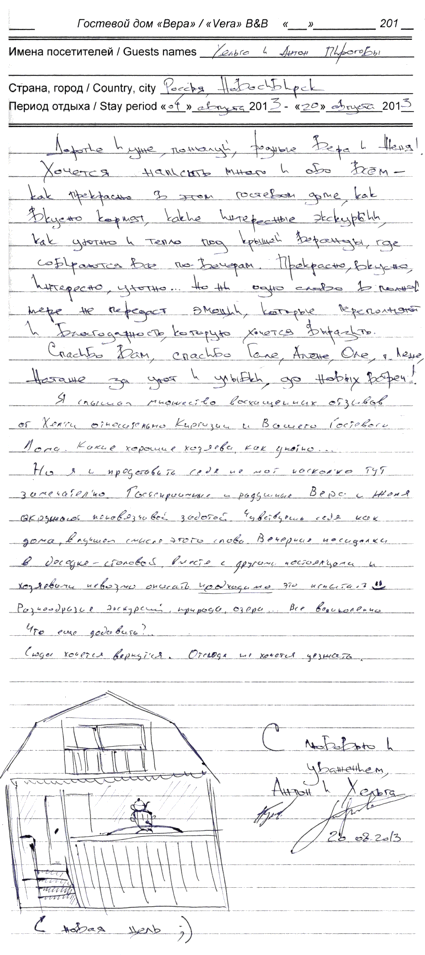 Гостевой дом «Вера» / «Vera» B&B «___»____________ 201__
Имена посетителей / Guests names Хельга и Антон Пироговы
Страна, город / Country, city Россия, Новосибирск
Период отдыха / Stay period «01» августа 2013 - «20» августа 2013
Дорогие и уже, пожалуй, родные Вера и Женя!
Хочется написать много и обо Всём –
как прекрасно в этом гостевом доме, как
Вкусно кормят, какие интересные экскурсии,
как уютно и тепло под крышей Веранды, где
собираются Все по Вечерам. Прекрасно, Вкусно,
Интересно, уютно... Но ни одно слово В полной
мере не передаст эмоций, которые переполняют
и Благодарность, которую хочется Выразить.
Спасибо Вам, спасибо Гале, Алене, Оле,
Наташе за уют и улыбки, до новых Встреч!
Я слышал множество восхищенных отзывов
от Хельги относительно Киргизии и Вашего Гостевого
Дома. Какие хорошие хозяева, как уютно...
Но я и представить себе не мог насколько тут
замечательно. Гостеприимные и радушные Вера и Женя
окружают ненавязчивой заботой. Чувствуешь себя как
дома, в лучшем смысле этого слова. Вечерние посиделки
в беседке-столовой вместе с другими постояльцами и
хозяевами невозможно описать необходимо это испытать
Разнообразие экскурсий, природа, озеро... Все великолепно
Что еще добавить?..
Сюда хочется вернуться. Отсюда не хочется уезжать.
С любовью и
уважением,
Антон и Хельга
20.08.2013
С новая цель ;)